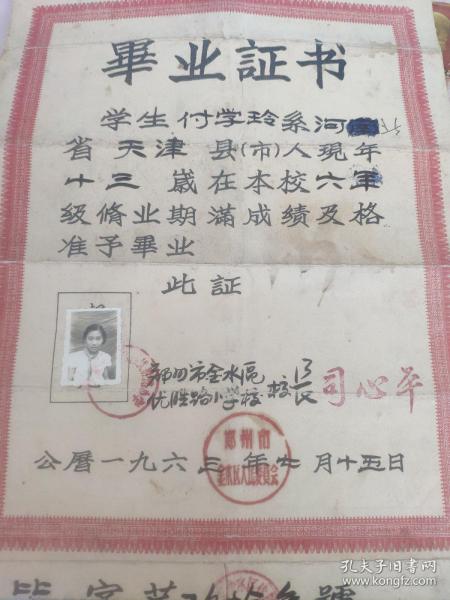 畢业証书
学生付学玲系河
省天津县(市)人現年
十三歲在本校六年
級脩业期滿成績及格
准予畢业
此証
郑州市金水區
优胜路小学校 校長 司心平
郑州市
金水区人民委員会
公曆一九六三年七月十五日
孔夫子旧书网